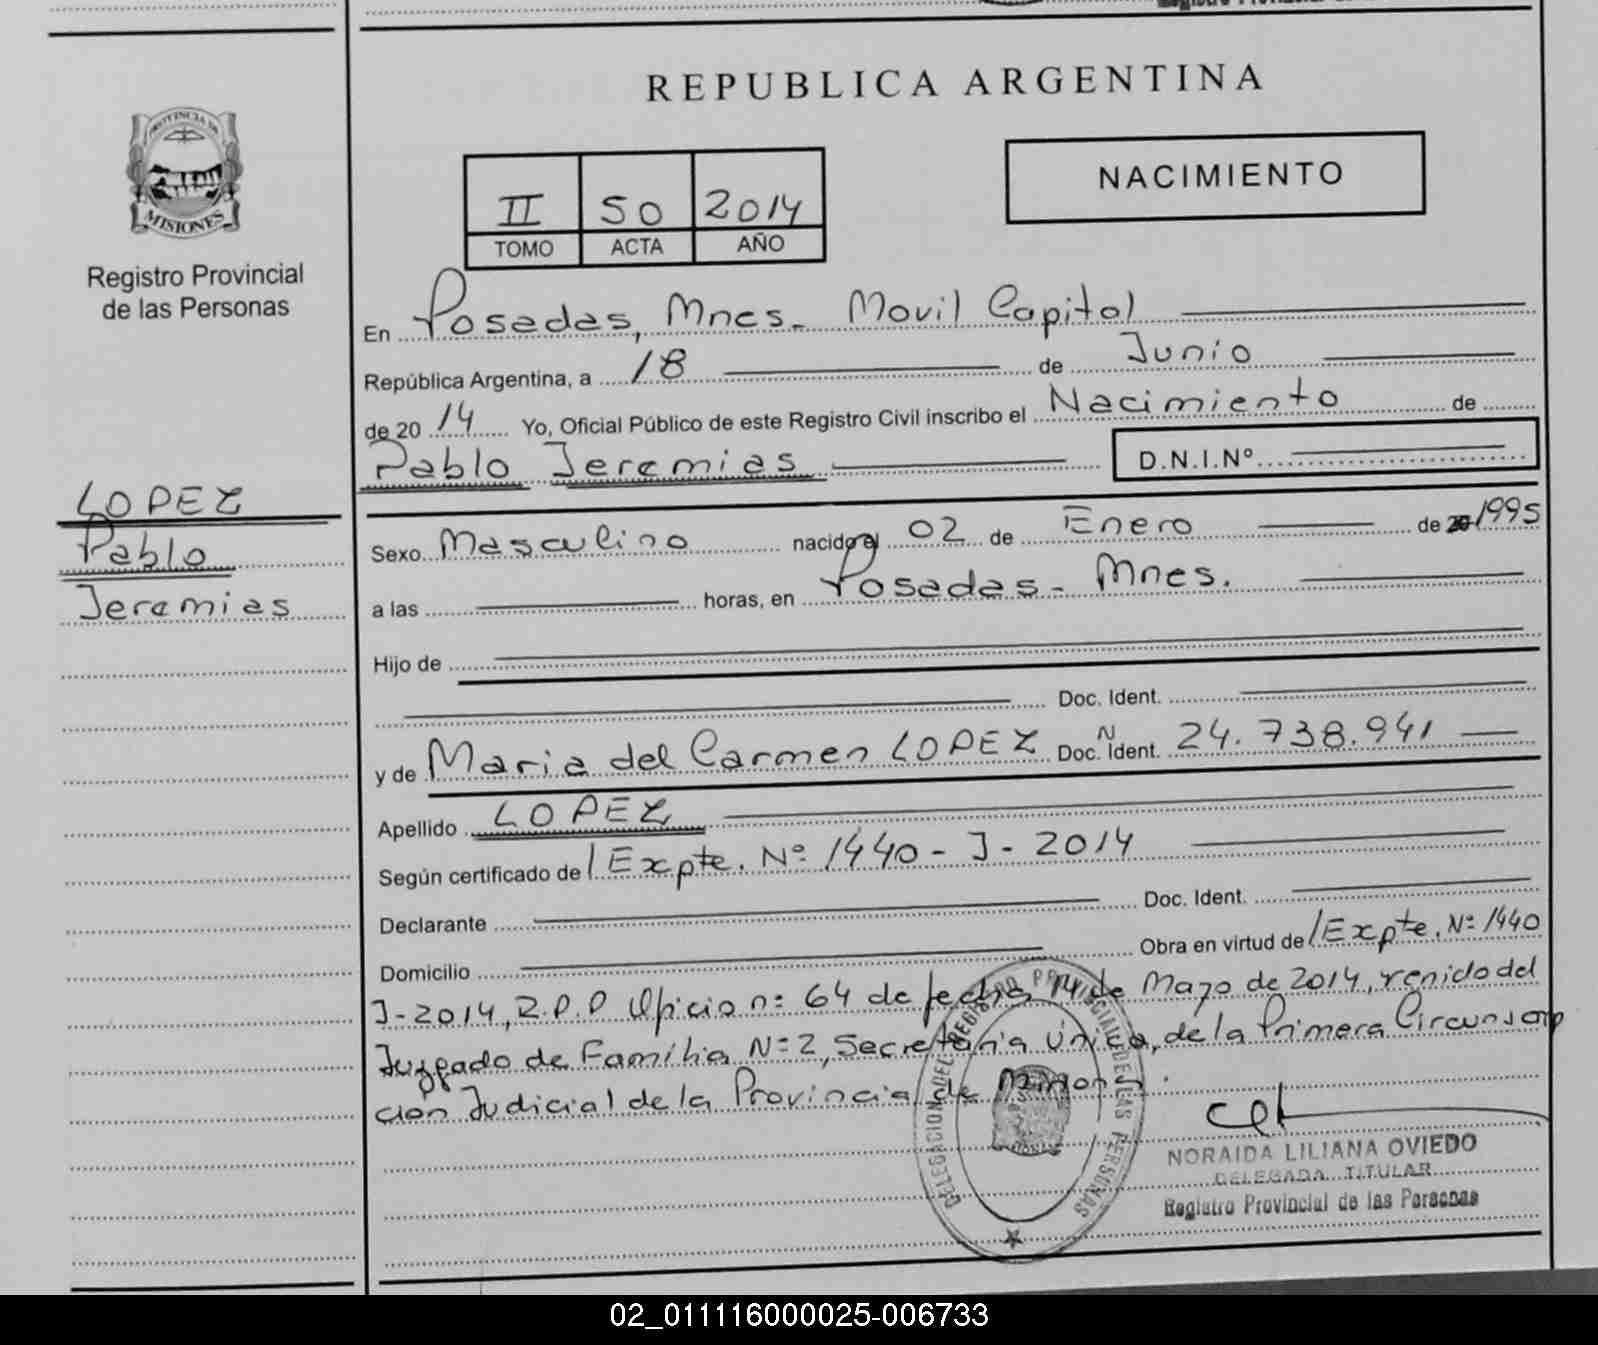 REPUBLICA ARGENTINA
PROVINCIA DE
MISIONES
Registro Provincial
de las Personas
NACIMIENTO
II 50 2014
TOMO ACTA AÑO
En Posadas, Mnes. Movil Capital
República Argentina, a 18 de Junio
de 20 14 Yo, Oficial Público de este Registro Civil inscribo el Nacimiento de
Pablo Jeremias D.N.I.Nº
LOPEZ
Pablo
Jeremias
Sexo Masculino nacido el 02 de Enero de 20 1995
a las horas, en Posadas - Mnes.
Hijo de
Doc. Ident.
y de Maria del Carmen LOPEZ Doc. N Ident. 24.738.941
Apellido LOPEZ
Según certificado de / Expte. Nº 1440 - J - 2014
Declarante Doc. Ident.
Domicilio Obra en virtud de / Expte. Nº 1440
J-2014, R.P.P Oficio nº 64 de fecha 14 de Mayo de 2014, venido del
Juzgado de Familia Nº 2, Secretaria Unica, de la Primera Circunscrip
cion Judicial de la Provincia de Misiones.
DELEGACION DEL REGISTRO PROVINCIAL DE LAS PERSONAS
NORAIDA LILIANA OVIEDO
DELEGADA TITULAR
Registro Provincial de las Personas
02_011116000025-006733